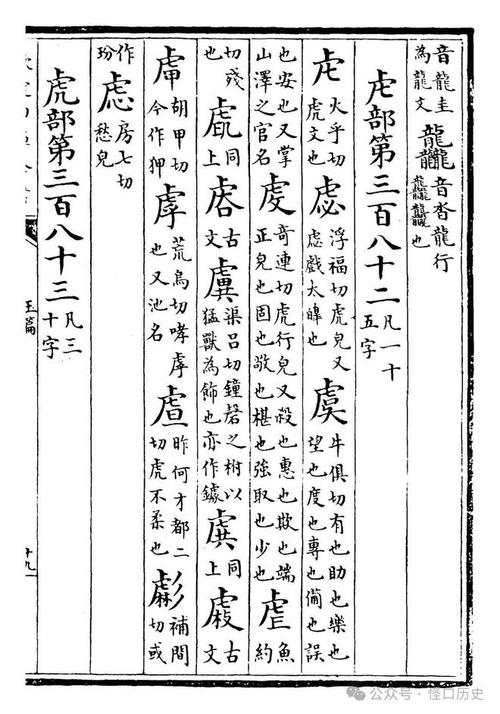 音龍圭為龍文 龘 音沓龍行龘龘也
虍部第三百八十二 凡一十五字
虍 火乎切虎文也 虙 浮福切虎皃又虙戲太皥也 虞 牛俱切有也助也樂也望也度也專也備也誤
也安也又掌山澤之官名 虔 奇連切虎行皃又殺也惠也欺也端正皃也固也敬也椹也強取也少也 虐 魚約
切殘也 同上 古文 虡 渠呂切鐘磬之柎以猛獸為飾也亦作鐻 同上 古文
胡甲切今作狎 虖 荒烏切哮虖也又池名 虘 昨何才都二切虎不柔也 虨 補間切或
作玢 虑 房七切愁皃
虎部第三百八十三 凡三十字
玉篇
十九
公众号·怪口历史